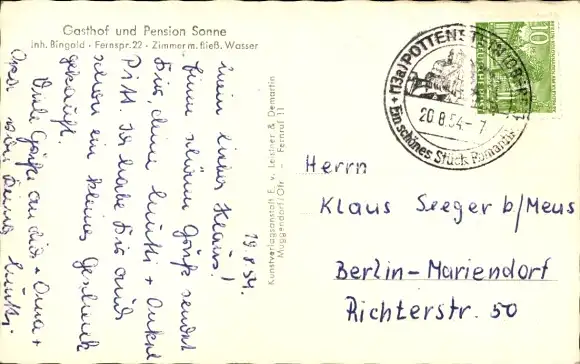 Gasthof und Pension Sonne
Inh. Bingold · Fernspr. 22 · Zimmer m. fließ. Wasser
19.8.54.
Mein lieber Klaus!
Einen schönen Gruß sendet
Dir, deine Mutti + Onkel
Pitt. Ich habe Dir auch
schon ein kleines Geschenk
gekauft.
Viele Grüße an Dich + Oma +
Opa von Deiner Mutti.
Kunstverlagsanstalt E. v. Leistner & Demartin
Muggendorf/Ofr. — Fernruf 11
(13a) POTTENSTEIN
20.8.54.-7
Ein schönes Stück Romantik
10
Herrn
Klaus Seeger b/Meus
Berlin-Mariendorf
Richterstr. 50